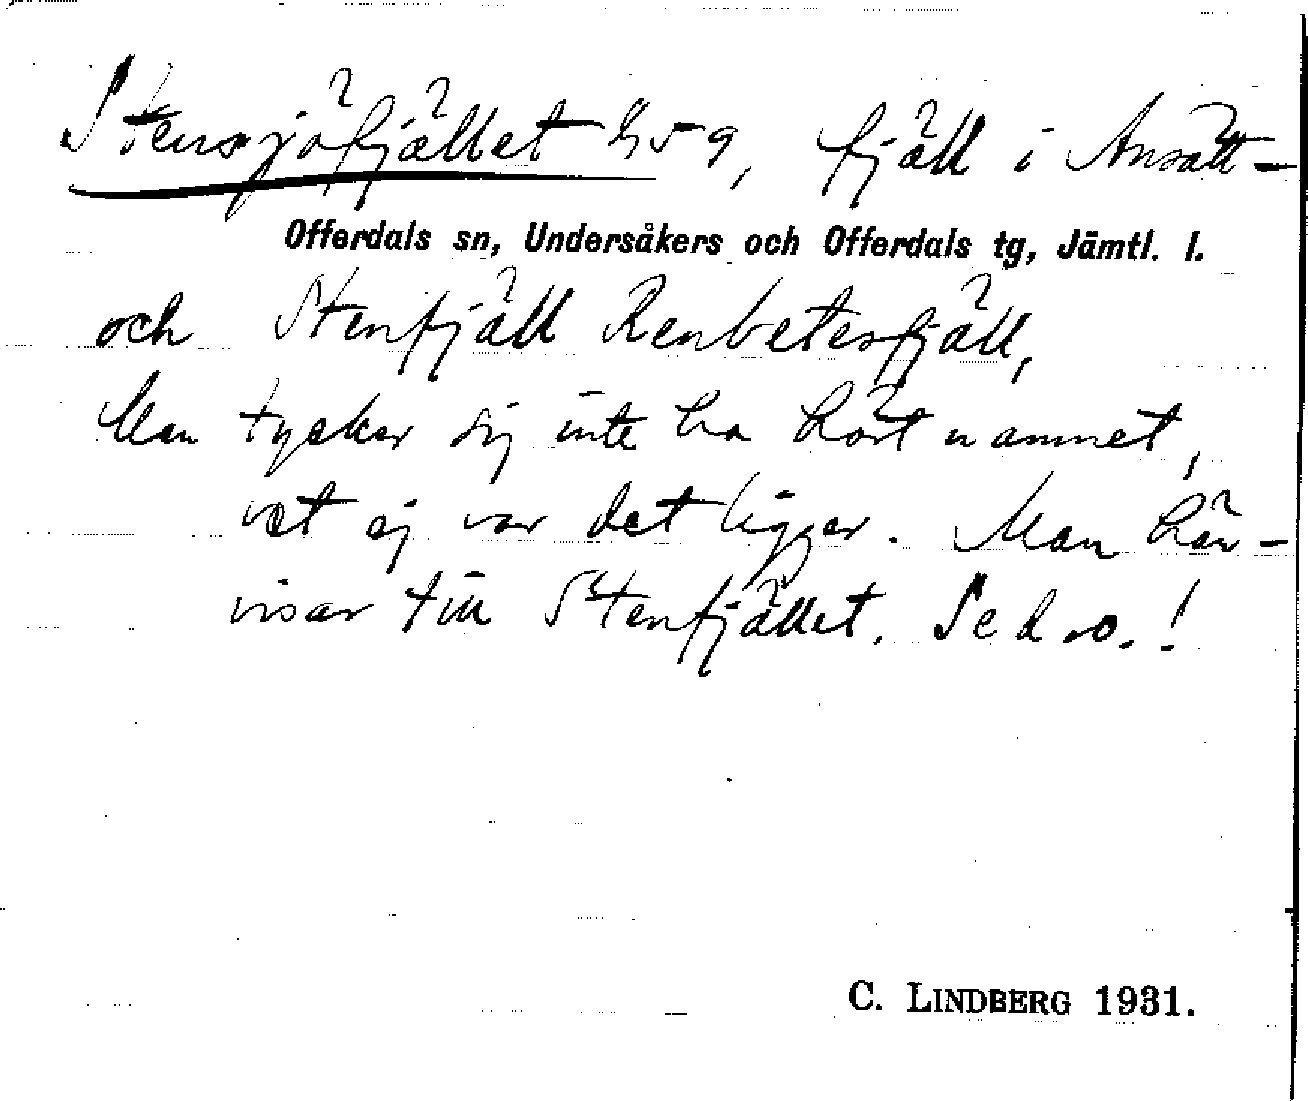 Stensjöfjället G59, fjäll i Ansätt-
Offerdals sn, Undersåkers och Offerdals tg, Jämtl. l.
och Stenfjäll Renbetesfjäll,
Man tycker sig inte ha hört namnet,
vet ej var det ligger. Man hän-
visar till Stenfjället. Se d. o.!
C. LINDBERG 1931.